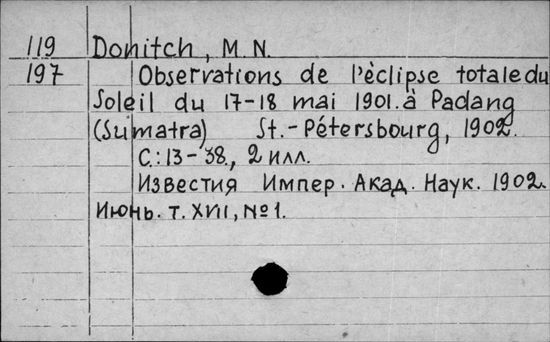 119 Donitch, M. N.
197 Observations de l'èclipse totale du
Soleil du 17-18 mai 1901. à Padang
(Sumatra) St.-Pétersbourg, 1902.
С.: 13-38., 2 илл.
Известия Импер. Акад. Наук. 1902.
Июнь. т. XVII, №1.